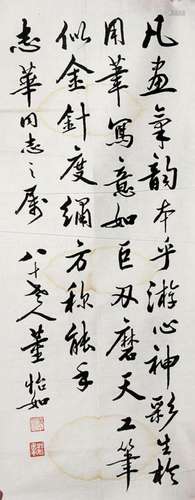 凡畫氣韵本乎游心神彩生於
用筆寫意如巨刃磨天工筆
似金針度繡方称能手
志華同志之属
八十老人董怡如